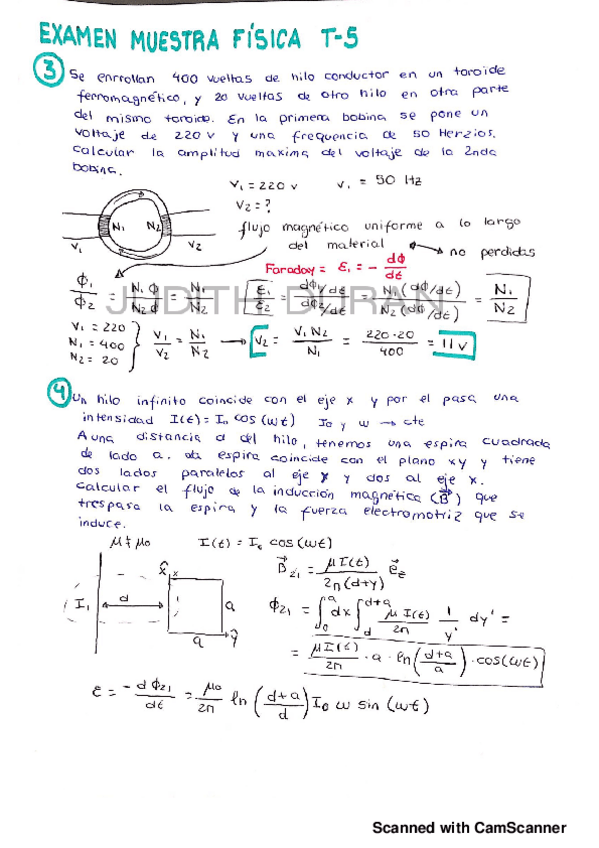 EXAMEN MUESTRA FÍSICA T-5
3 Se enrrollan 400 vueltas de hilo conductor en un toroide
ferromagnético, y 20 vueltas de otro hilo en otra parte
del mismo toroide. En la primera bobina se pone un
voltaje de 220 v y una frequencia de 50 Herzios.
calcular la amplitud maxima del voltaje de la 2nda
bobina.
V₁ = 220 v V₁ = 50 Hz
V₂ = ?
N₁ N₂
V₁ V₂
flujo magnético uniforme a lo largo
del material → no perdidas
Faraday = ε₁ = - dΦ/dt
Φ₁/Φ₂ = N₁Φ/N₂Φ = N₁/N₂ ε₁/ε₂ = dΦ₁/dt / dΦ₂/dt = N₁(dΦ/dt) / N₂(dΦ/dt) = N₁/N₂
JUDITH DURAN
V₁ = 220
N₁ = 400
N₂ = 20
V₁/V₂ = N₁/N₂ → V₂ = V₁N₂/N₁ = 220·20/400 = 11 v
4 Un hilo infinito coincide con el eje x y por el pasa una
intensidad I(t) = I₀ cos (wt) I₀ y w → cte
A una distancia d del hilo, tenemos una espira cuadrada
de lado a. la espira coincide con el plano xy y tiene
dos lados paralelos al eje y y dos al eje x.
calcular el flujo de la inducción magnética (B⃗) que
trespasa la espira y la fuerza electromotriz que se
induce.
I(t) = I₀ cos(wt)
B⃗₂₁ = μI(t) / 2π(d+y) e⃗
x̂ x
I₁ d a
a ŷ
Φ₂₁ = ∫₀ᵃ dx ∫_d^(d+a) μI(t)/2π 1/y' dy' =
= μI(t)/2π · a · ln(d+a/a) · cos(wt)
ε = -dΦ₂₁/dt = μ₀/2π ln (d+a/d) I₀ w sin (wt)
Scanned with CamScanner